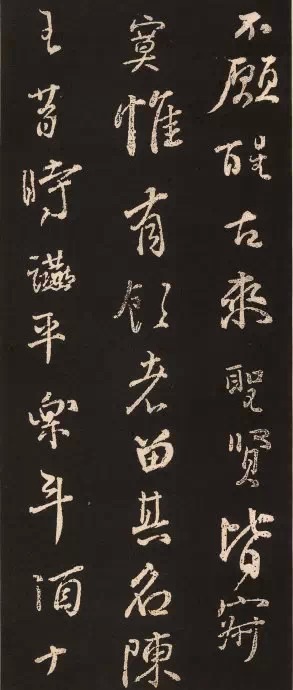 不願醒古來聖賢皆寂
寞惟有飲者留其名陳
王昔時讌平樂斗酒十